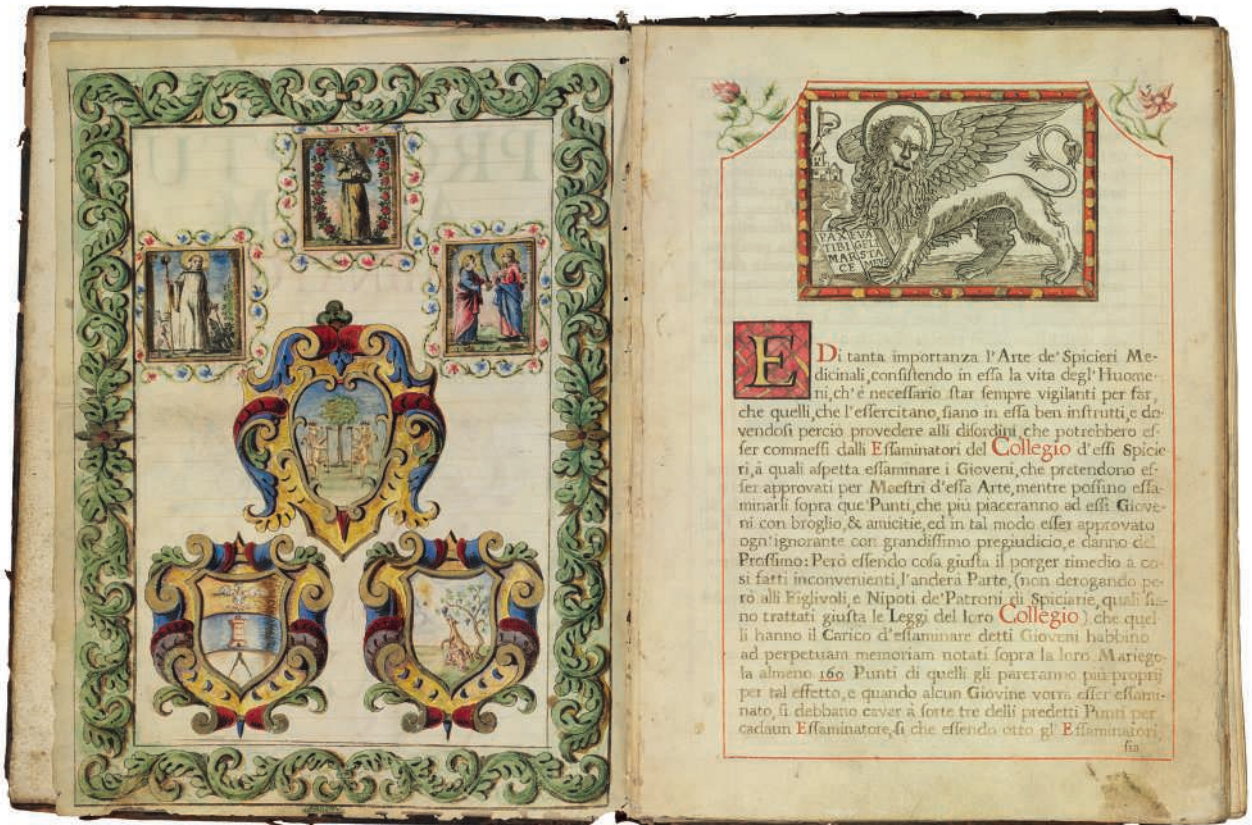 PAX EVA
TIBI GELI
MAR STA
CE MEVS
E Di tanta importanza l'Arte de' Spicieri Me-
dicinali, consistendo in essa la vita degl' Huome-
ni, ch' é necessario star sempre vigilanti per far,
che quelli, che l'essercitano, siano in essa ben instrutti, e do-
vendosi perciò provedere alli disordini, che potrebbero es-
ser commessi dalli Essaminatori del Collegio d'essi Spicie
ri, à quali aspetta essaminare i Gioveni, che pretendono es-
ser approvati per Maestri d'essa Arte, mentre possino essa-
minarli sopra que' Punti, che più piaceranno ad essi Giove-
ni con broglio, & amicitie, ed in tal modo esser approvato
ogn' ignorante con grandissimo pregiudicio, e danno del
Prossimo: Però essendo cosa giusta il porger rimedio à co-
si fatti inconvenienti, l'anderà Parte, (non derogando pe-
rò alli Figlivoli, e Nipoti de' Patroni di Spiciarie, quali sia-
no trattati giusta le Leggi del loro Collegio) che quel
li hanno il Carico d'essaminare detti Gioveni habbino
ad perpetuam memoriam notati sopra la loro Mariego
la almeno 160 Punti di quelli gli pareranno più proprij
per tal effetto, e quando alcun Giovine vorrà esser essami-
nato, si debbano cavar à sorte tre delli predetti Punti per
cadaun Essaminatore, si che essendo otto gl' Essaminatori,
sia